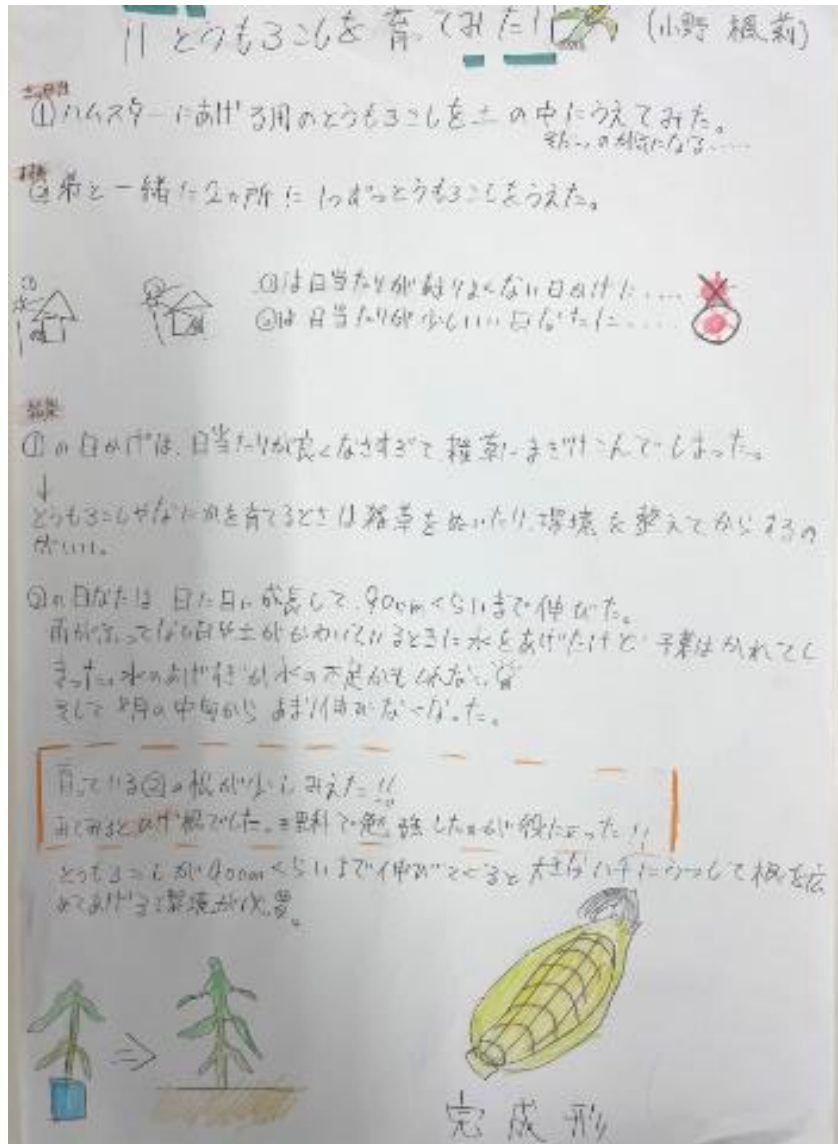 !! とうもろこしを育ててみた!! (小野 楓莉)
きっかけ
①ハムスターにあげる用のとうもろこしを土の中にうえてみた。
が気になる.....
②弟と一緒に2ヵ所に1つずつとうもろこしをうえた。
① ② ①は日当たりが余りよくない日かげに....
②は日当たりが少しいい日なたに.....
結果
①の日かげは、日当たりが良くなさすぎて、雑草にまぎけこんでしまった。
↓
とうもろこしやなにかを育てるときは雑草をぬいたり、環境を整えてからするの
がいい。
②の日なたは 日に日に成長して、90cmくらいまで伸びた。
雨がふってない日や土がかわいているときに水をあげたけど 子葉はかれてし
まった。水のあげすぎか水の不足かもしれない。
そして8月の中旬から あまり伸びなくなった。
育っている②の根が少しみえた!!
みてみるとひげ根でした。理科で勉強したのが役に立った!!
とうもろこしが90cmくらいまで伸びてくると 大きなハチにうつして根を広
めてあげる環境が必要。
完成形